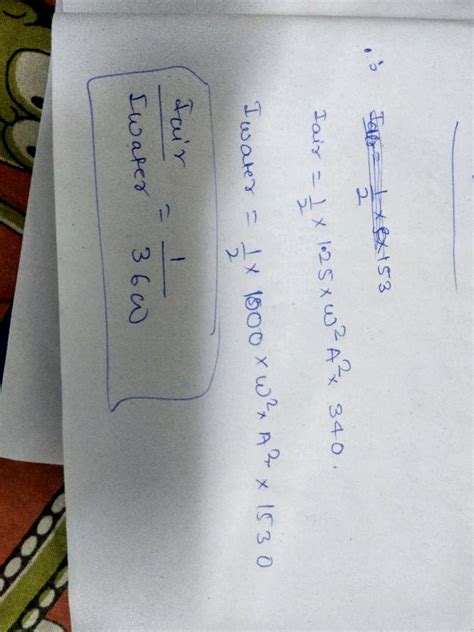 ∴ I̶a̶i̶r̶ ̶=̶ ̶1̶/̶2̶ ̶×̶ 153
Iair = 1/2 × 125 × ω²A² × 340.
Iwater = 1/2 × 1000 × ω² × A² × 1530
Iair / Iwater = 1 / 3600